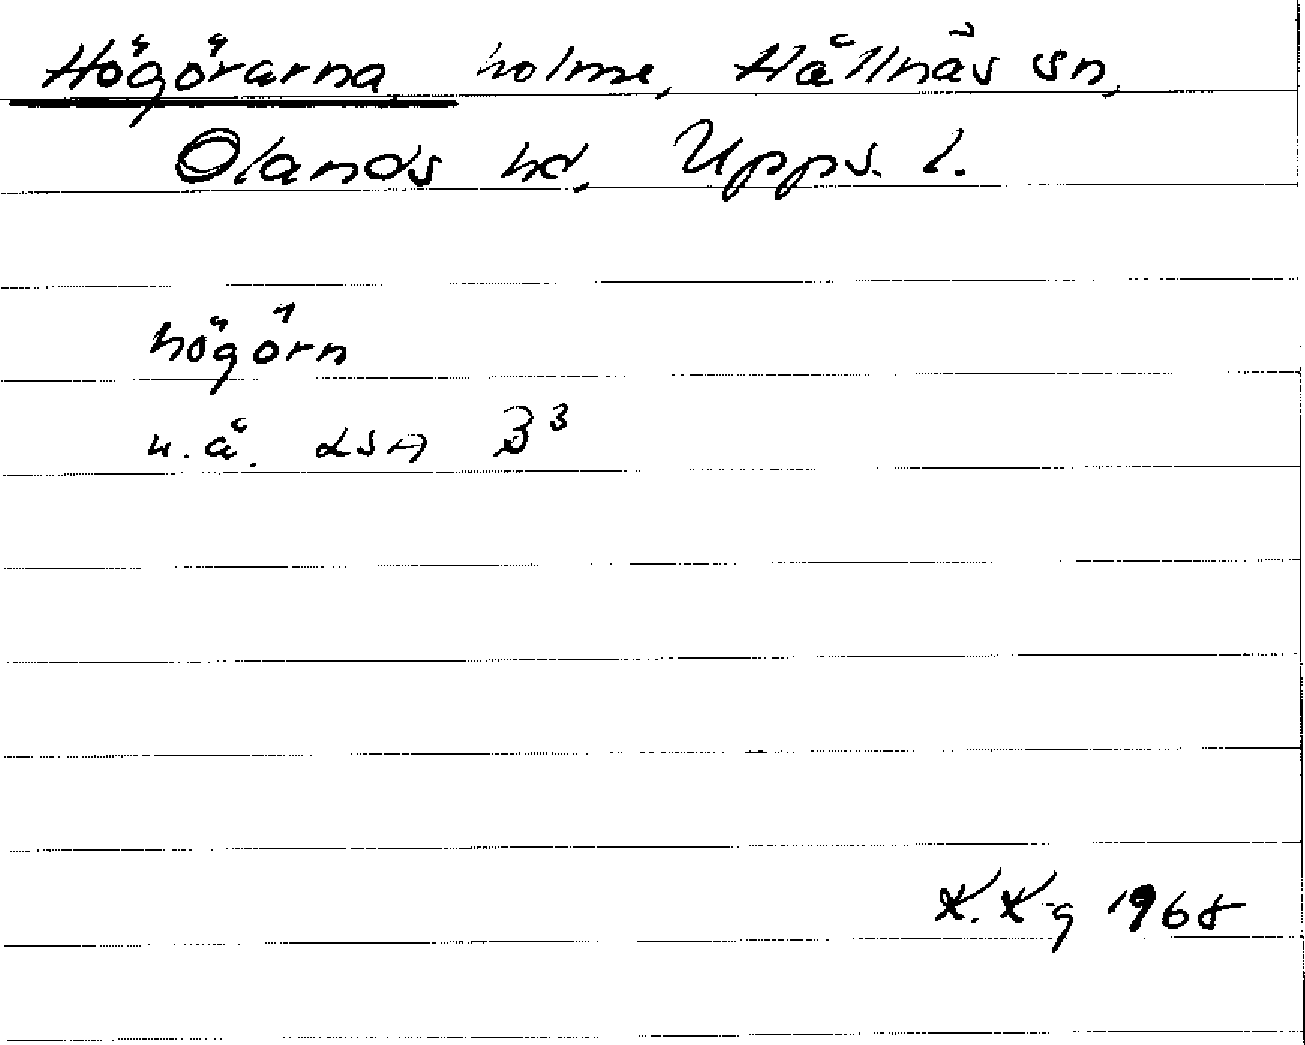 Högörarna, holme, Hållnäs sn,
Olands hd, Upps. l.
högörn
u.å. LSA B³
K. K-g 1968